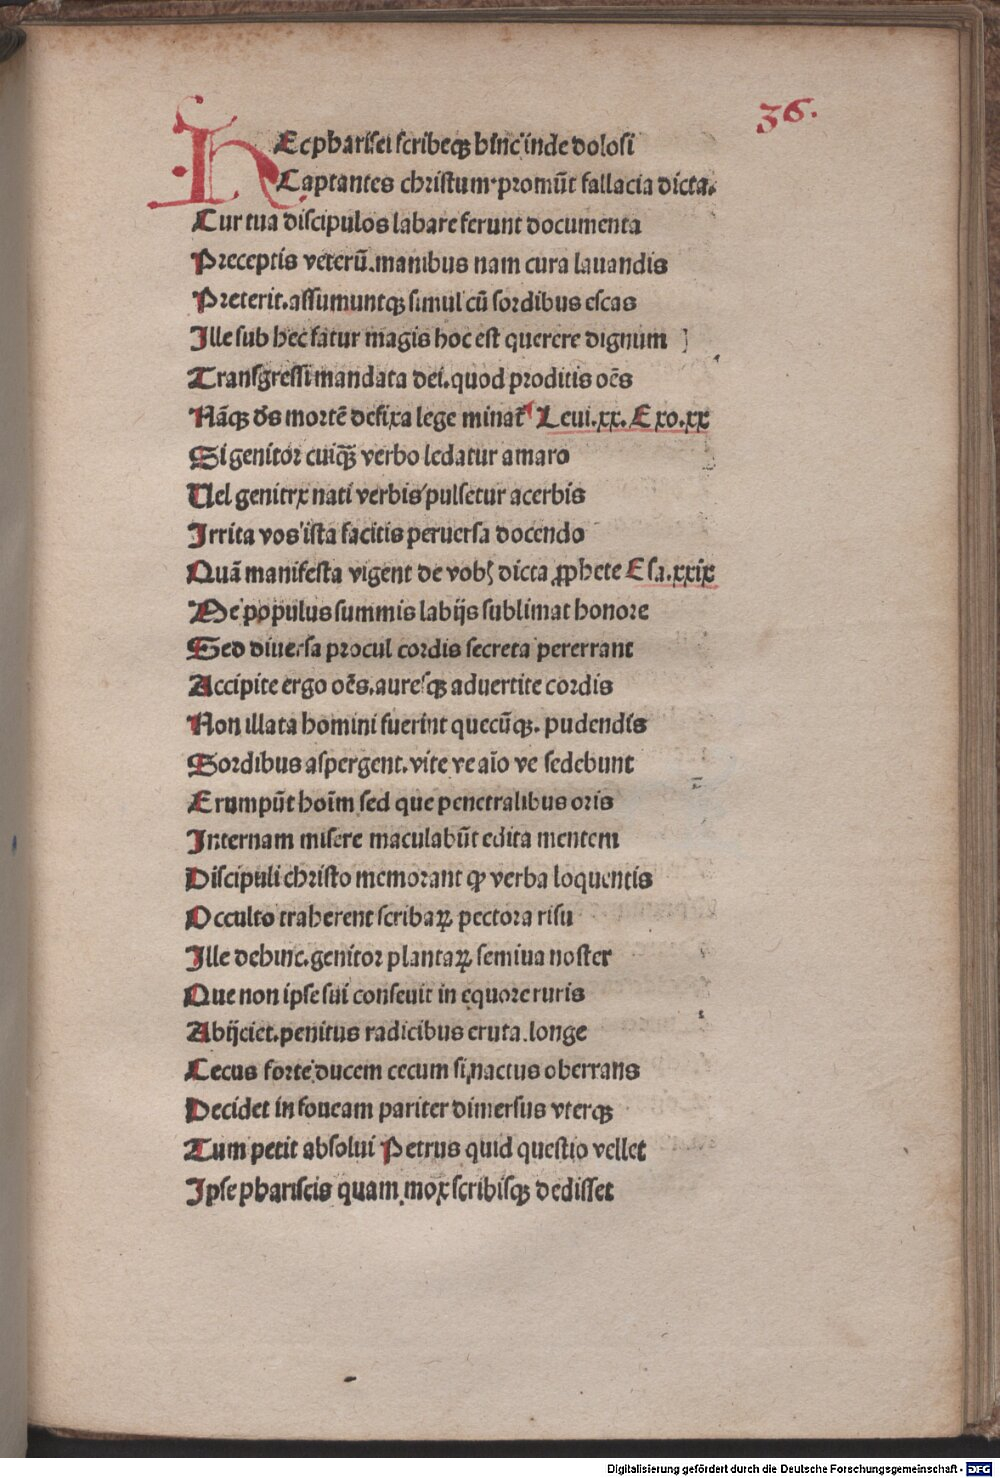 36.
HEc pharisei scribeqꝫ hinc inde dolosi
Captantes christum·promūt fallacia dicta.
Cur tua discipulos labare ferunt documenta
Preceptis veterū.manibus nam cura lauandis
Preterit.assumuntqꝫ simul cū sordibus escas
Ille sub hec fatur magis hoc est querere dignum
Transgressi mandata dei.quod proditis oēs
Nāqꝫ ds̄ mortē defixa lege minat᷑ Leui.xx.Exo.xx
Si genitor cuiqꝫ̄ verbo ledatur amaro
Uel genitrx nati verbis pulsetur acerbis
Irrita vos ista facitis peruersa docendo
Quā manifesta vigent de vobꝭ dicta ꝓphete Esa.xxix
Me populus summis labijs sublimat honore
Sed diuersa procul cordis secreta pererrant
Accipite ergo oēs.auresqꝫ aduertite cordis
Non illata homini fuerint quecūqꝫ. pudendis
Sordibus aspergent.vite ve aīo ve sedebunt
Erumpūt hoīm sed que penetralibus oris
Internam misere maculabūt edita mentem
Discipuli christo memorant ꝙ verba loquentis
Occulto traherent scribaꝝ pectora risu
Ille dehinc.genitor plantaꝝ semiua noster
Que non ipse sui conseuit in equore ruris
Abijciet.penitus radicibus eruta.longe
Cecus forte ducem cecum si nactus oberrans
Decidet in foueam pariter dimersus vterqꝫ
Tum petit absolui Petrus quid questio vellet
Ipse phariseis quam mox scribisqꝫ dedisset
Digitalisierung gefördert durch die Deutsche Forschungsgemeinschaft - DFG